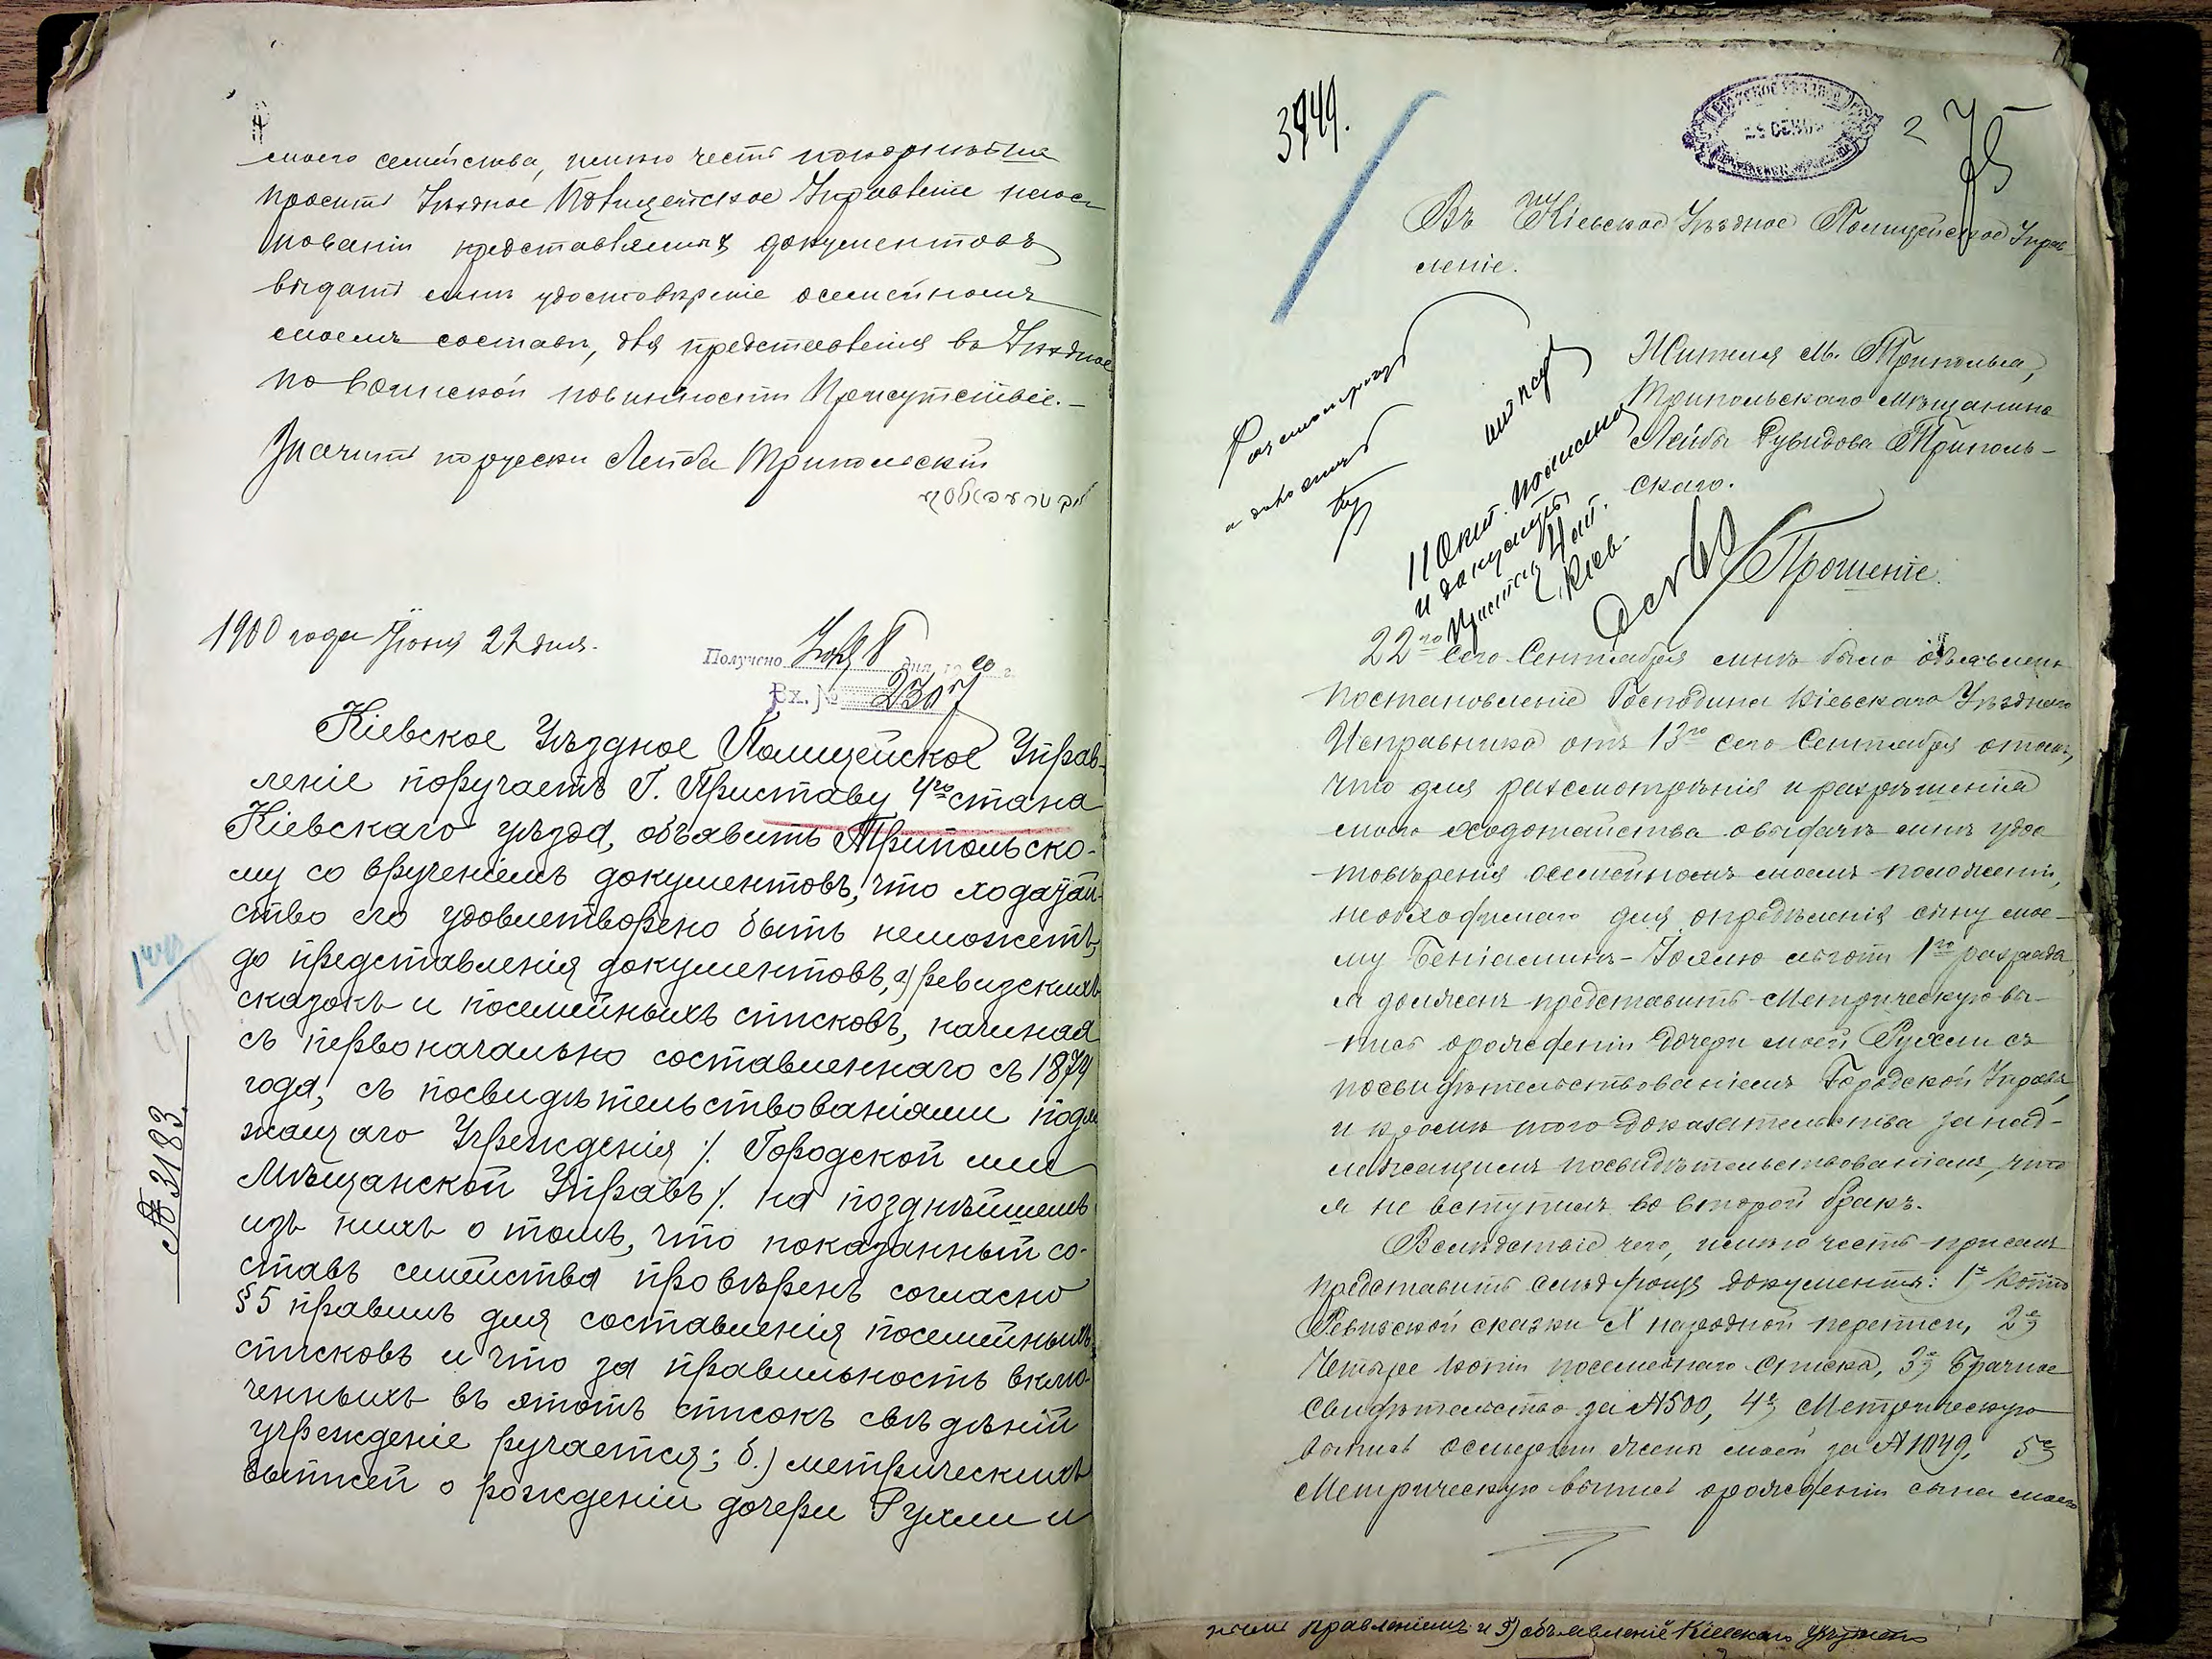 моего семейства, имѣю честь покорнѣйше
просить Уѣздное Полицейское Управленіе на ос-
нованіи представляемыхъ документовъ
выдать мнѣ удостовѣреніе о семейномъ
моемъ составѣ, для представленія въ Уѣздное
по воинской повинности Присутствіе.-
Значитъ порусски Лейба Трипольскій
1900 года Іюня 22 дня.
Получено дня 1900 г.
Вх. № 2307
Кіевское Уѣздное Полицейское Управ-
леніе поручаетъ Г. Приставу 4го стана
Кіевскаго уѣзда, объявить Трипольско-
му со врученіемъ документовъ, что ходатай-
ство его удовлетворено быть неможетъ,
до представленія документовъ, а) ревизскихъ
сказокъ и посемейныхъ списковъ, начиная
съ первоначально составленнаго съ 1874
года, съ посвидѣтельствованіями подле
жащаго Учрежденія /. Городской или
Мѣщанской Управъ /. на позднѣйшемъ
изъ нихъ о томъ, что показанный со-
ставъ семейства провѣренъ согласно
§ 5 правилъ для составленія посемейныхъ
списковъ и что за правильность вклю-
ченныхъ въ этотъ списокъ свѣдѣній
учрежденіе ручается; б.) метрическихъ
выписей о рожденіи дочери Рухли и
№ 3183.
3749.
2 75
Въ Кіевское Уѣздное Полицейское Управ-
леніе.
Жителя м. Триполья,
Трипольскаго мѣщанина
Лейбы Рувидова Триполь-
скаго.
Прошеніе.
22го сего Сентября мнѣ было объявлено
постановленіе Господина Кіевскаго Уѣзднаго
Исправника отъ 13го сего Сентября о томъ,
что для разсмотрѣнія и разрѣшенія
моего ходотайства о выдачѣ мнѣ удос
товѣренія о семейномъ моемъ положеніи,
необходимаго для опредѣленія сыну мое-
му Беніаминъ-Іоелю льготы 1го разряда,
я долженъ представить Метрическую вы-
пись о рожденіи дочери моей Рухли съ
посвидѣтельствованіемъ Городской Управы,
и кромѣ того доказательства за над-
лежащимъ посвидѣтельствованіемъ, что
я не вступилъ во второй бракъ.
Вслѣдствіе чего, имѣю честь присемъ
представить слѣдующія документы: 1е копію
Ревизской сказки X народной переписи, 2е)
Четыре копіи посемейнаго списка, 3е) Брачное
свидѣтельство за №500, 4е) Метрическую
выпись о смерти жены моей за №1049, 5е)
Метрическую выпись о рожденіи сына моего
правленіемъ и 5) объявленіе Кіевскаго